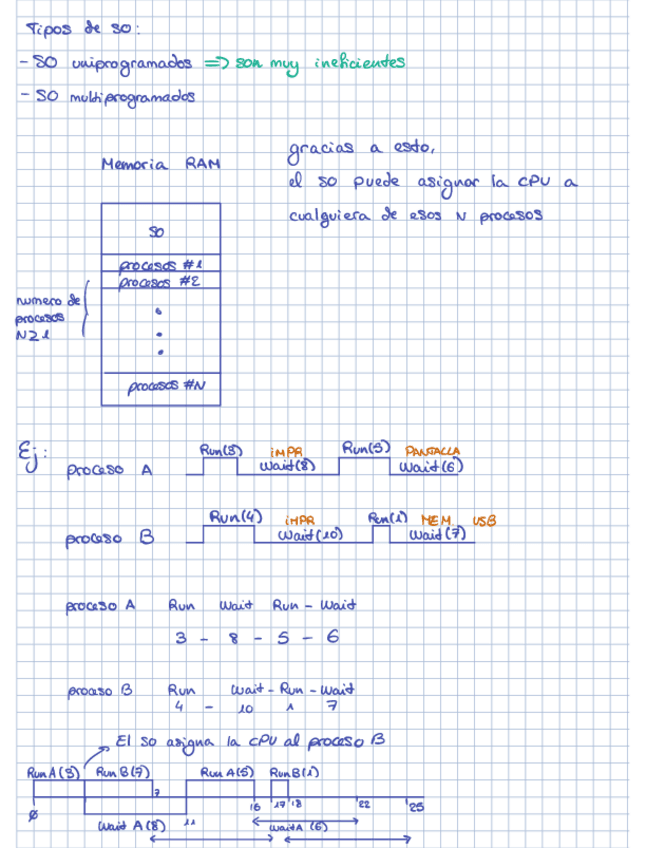 Tipos de SO:
- SO uniprogramados => son muy ineficientes
- SO multiprogramados
Memoria RAM
gracias a esto,
el SO puede asignar la CPU a
cualquiera de esos N procesos
SO
procesos #1
procesos #2
numero de
procesos
N≥1
procesos #N
Ej:
proceso A
Run(3) IMPR Run(5) PANTALLA
Wait(8) Wait(6)
proceso B
Run(4) IMPR Run(1) MEM USB
Wait(10) Wait(7)
proceso A Run Wait Run - Wait
3 - 8 - 5 - 6
proceso B Run Wait - Run - Wait
4 - 10 1 7
El SO asigna la CPU al proceso B
Run A(3) Run B(7) Run A(5) Run B(1)
7
0 11 16 17 18 22 25
Wait A(8) Wait A (6)